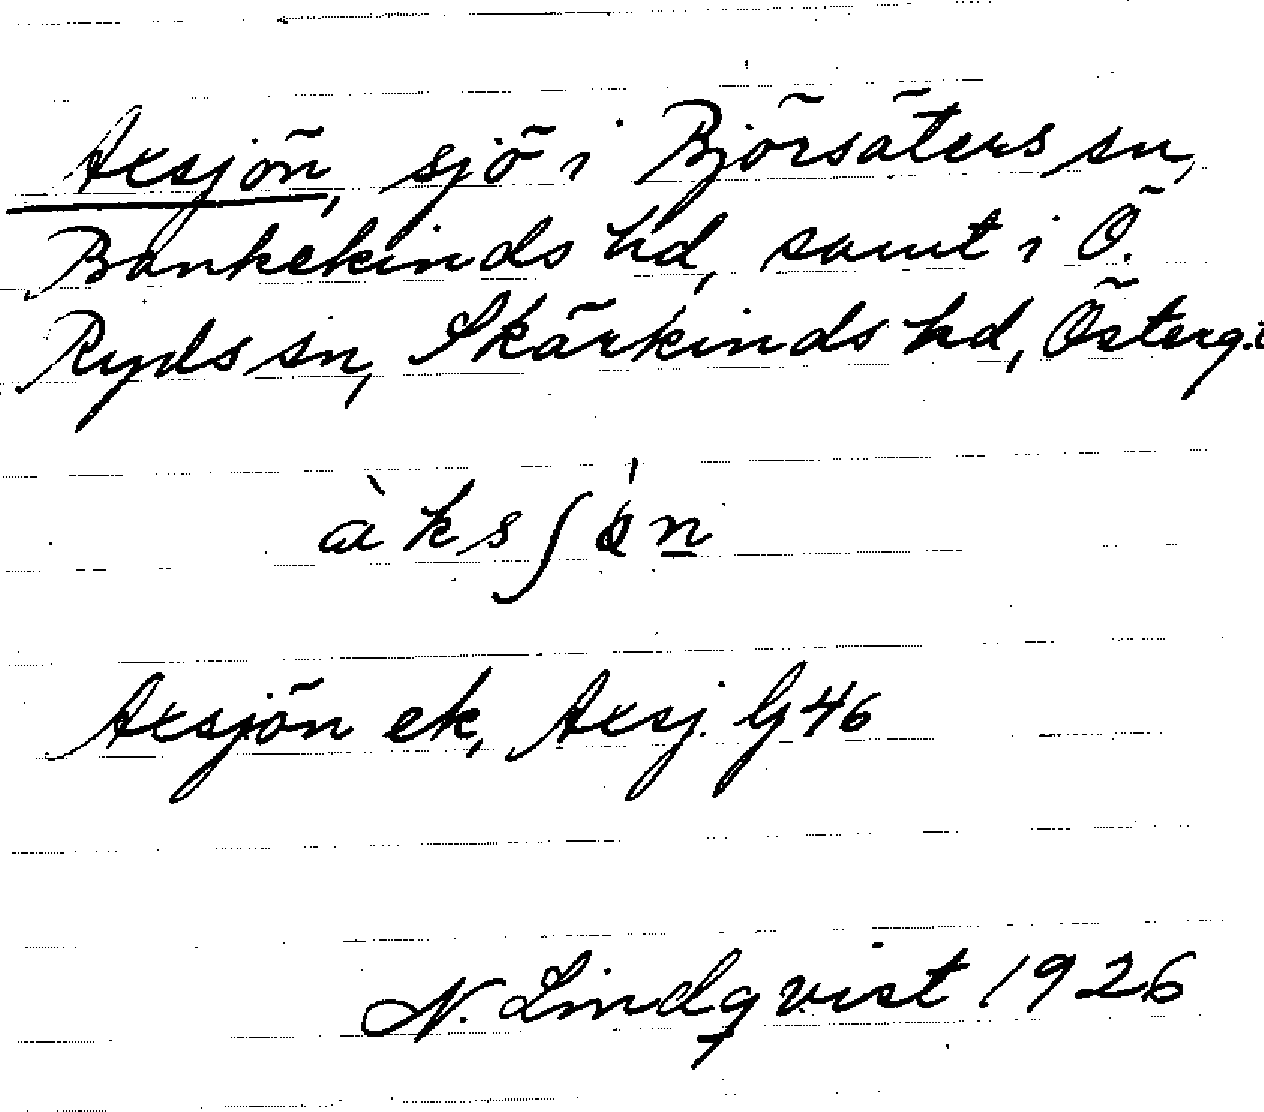 Axsjön, sjö i Björsäters sn,
Bankekinds hd, samt i Ö.
Ryds sn, Skärkinds hd, Österg.
àksʃǿn
Axsjön ek, Axsj. G 46
N. Lindqvist 1926